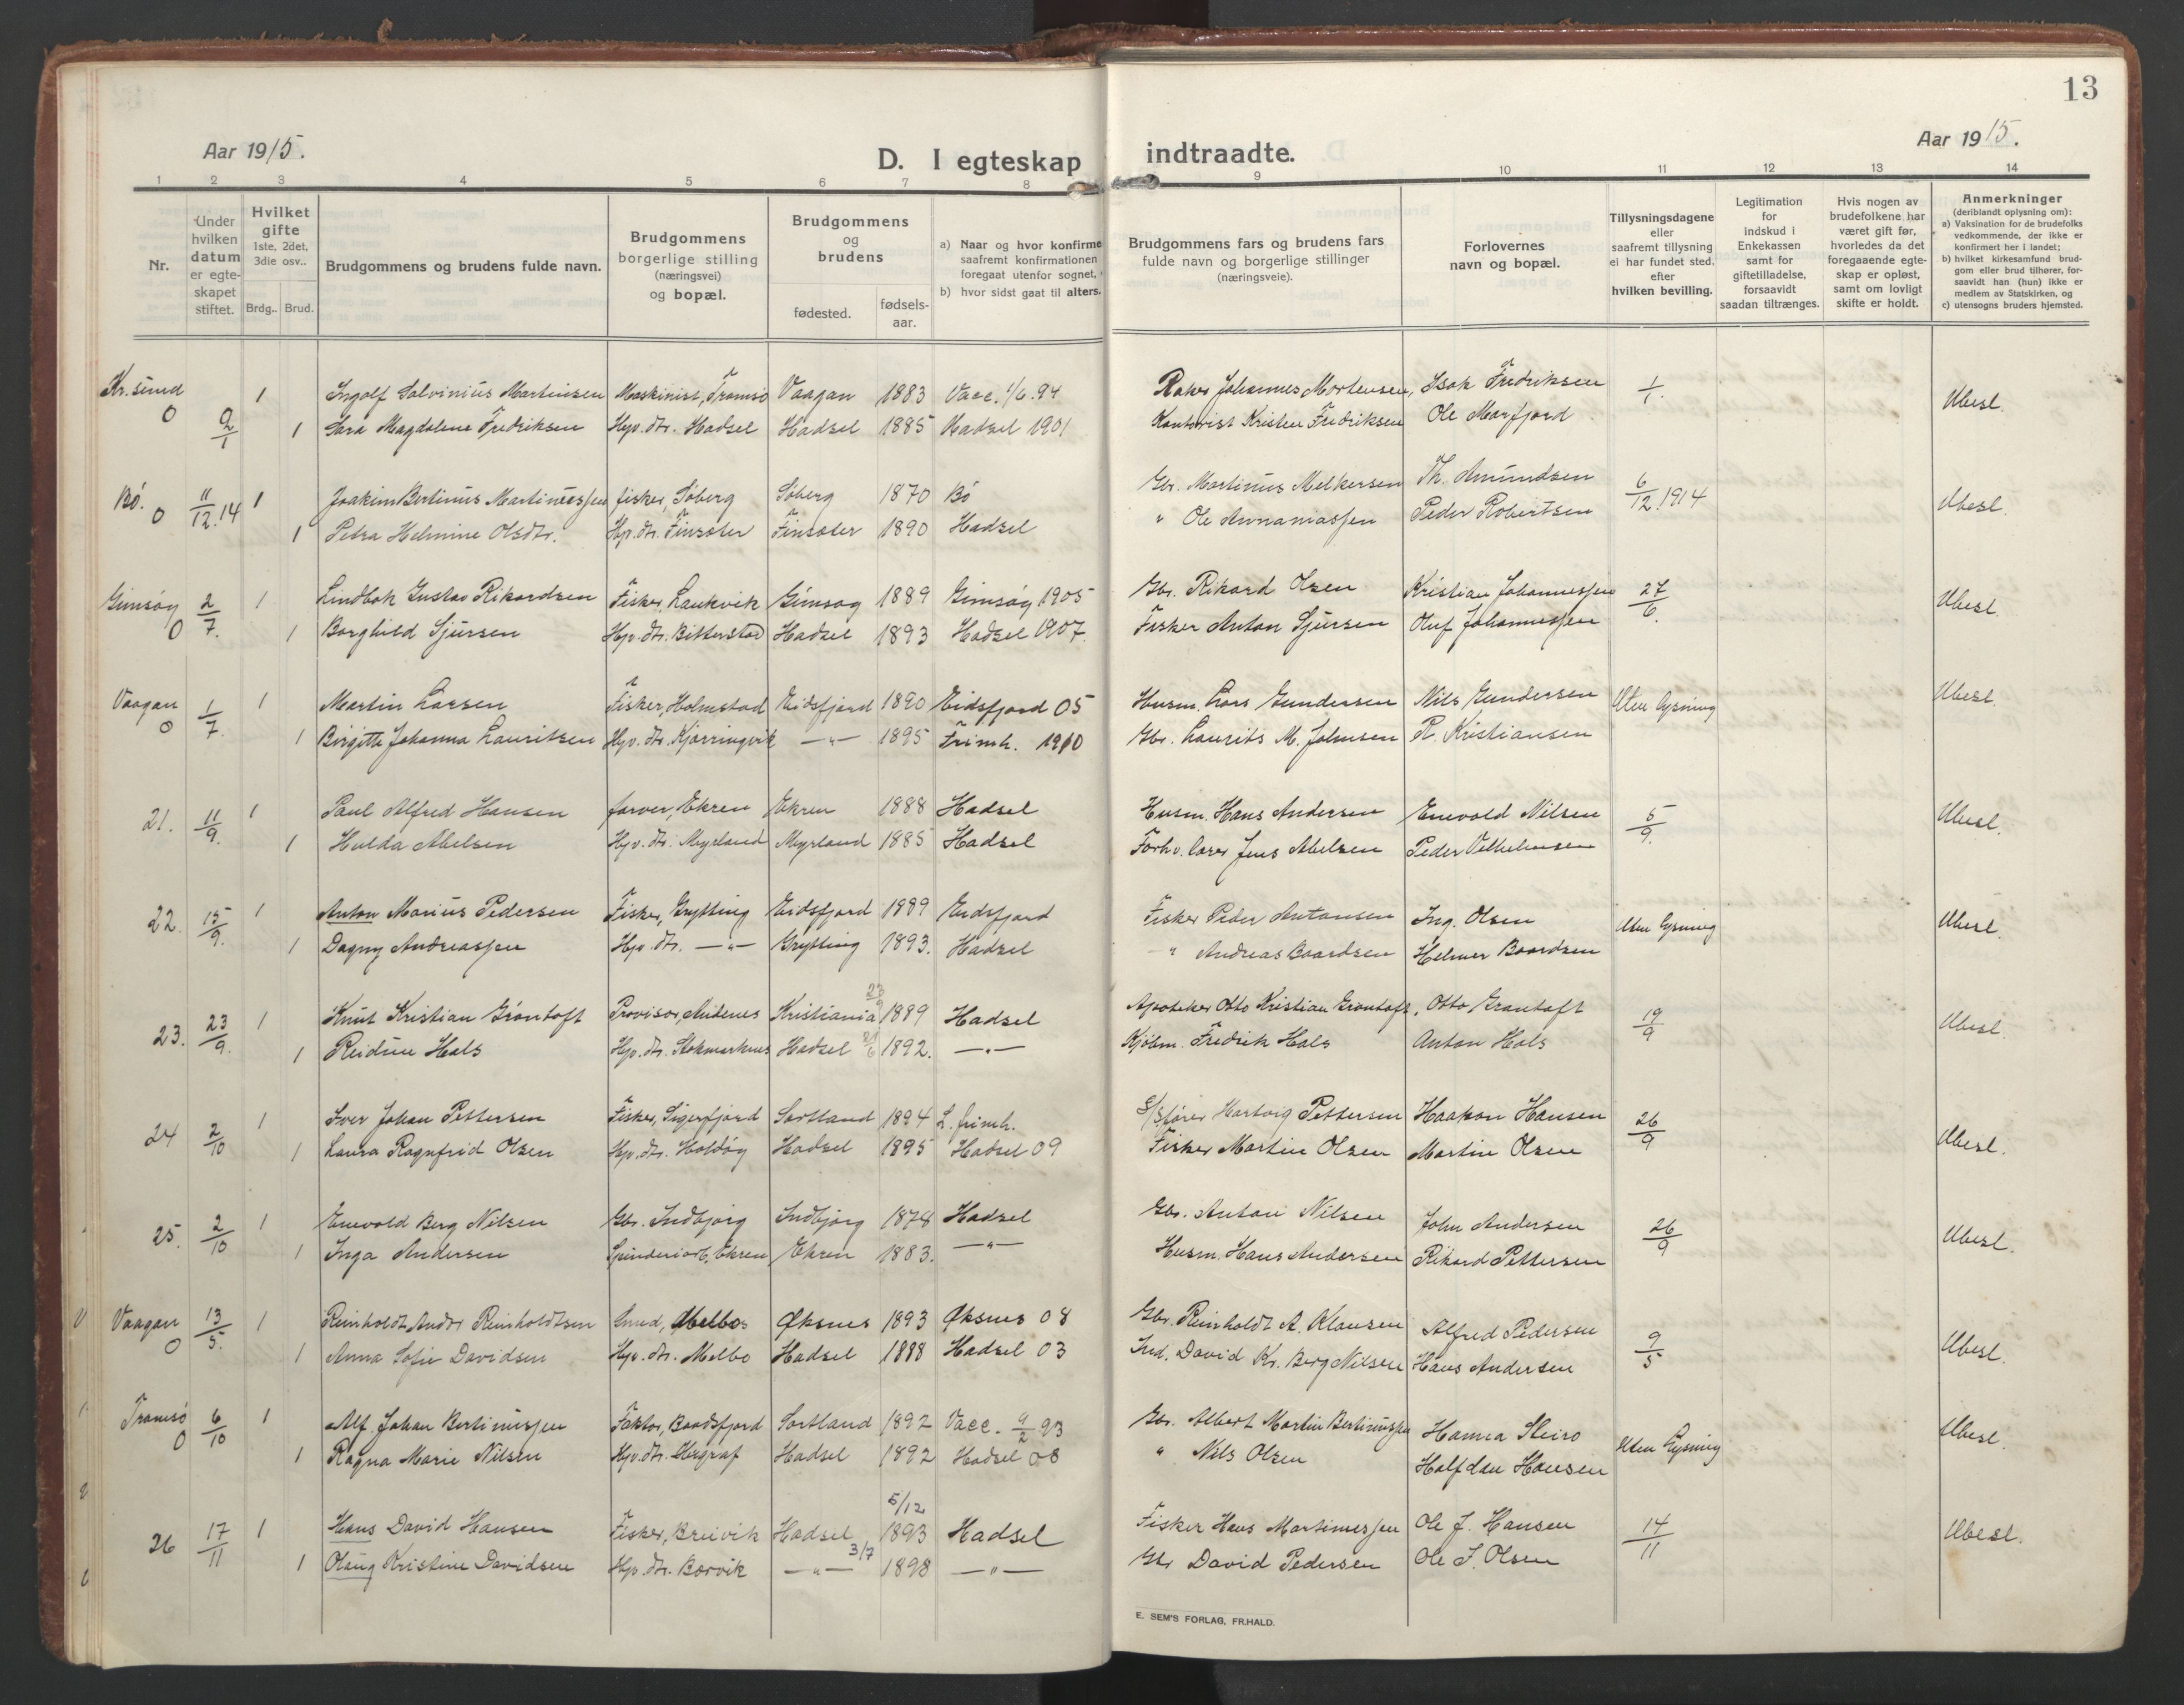 13
Aar 1915.
D. I egteskap indtraadte.
Aar 1915.
1 2 3 4 5 6 7 8 9 10 11 12 13 14
Nr.
Under hvilken datum er egteskapet stiftet.
Hvilket gifte 1ste, 2det, 3die osv..
Brdg.. Brud.
Brudgommens og brudens fulde navn.
Brudgommens borgerlige stilling (næringsvei) og bopæl.
Brudgommens og brudens
fødested.
fødselsaar.
a) Naar og hvor konfirme
saafremt konfirmationen
foregaat utenfor sognet,
b) hvor sidst gaat til alters.
Brudgommens fars og brudens fars fulde navn og borgerlige stillinger (næringsveie).
Forlovernes navn og bopæl.
Tillysningsdagene eller saafremt tillysning ei har fundet sted, efter hvilken bevilling.
Legitimation for indskud i Enkekassen samt for giftetilladelse, forsaavidt saadan tiltrænges.
Hvis nogen av brudefolkene har været gift før, hvorledes da det foregaaende egteskap er opløst, samt om lovligt skifte er holdt.
Anmerkninger
(deriblandt oplysning om):
a) Vaksination for de brudefolks vedkommende, der ikke er konfirmert her i landet;
b) hvilket kirkesamfund brudgom eller brud tilhører, forsaavidt han (hun) ikke er medlem av Statskirken, og
c) utensogns bruders hjemsted.
Kr.sund 1 Ingolf Salvinius Martinsen Maskinist, Tromsø Vaagan 1883 Vacc. 1/6.94 Johannes Mortensen, Isak Fredriksen 1/1. Ubesl.
0 2/1 1 Sara Magdalene Fredriksen Hjv. dtr. Hadsel Hadsel 1885 Hadsel 1901 Kontorist Kristen Fredriksen Ole Marfjord
Bø. 0 11/12.14 1 Joakim Bertinus Martinussen fisker, Søberg Søberg 1870 Bø Gbr. Martinus Melkersen Th. Amundsen 6/12.1914 Ubesl.
1 Petra Helmine Olsdtr. Hjv. dtr. Finsæter Finsæter 1890 Hadsel " Ole Annaniassen Peder Robertsen
Gimsøy 0 2/7. 1 Lindbak Gustav Rikardsen Fisker, Laukvik Gimsøy 1889 Gimsøy 1905 Gbr. Rikard Olsen Kristian Johannessen 27/6. Ubesl.
1 Borghild Sjursen Hjv. dtr. Bitterstad Hadsel 1893 Hadsel 1907. Fisker Anton Sjursen Oluf Johannessen
Vaagan 0 1/7. 1 Martin Larsen Fisker, Holmstad Eidsfjord 1890 Eidsfjord 05 Husm. Lars Gundersen Nils Gundersen Uten lysning Ubesl.
1 Birgitte Johanna Lauritsen Hjv. dtr. Kjørringvik —"— 1895 Frimh. 1910 Gbr. Laurits M. Johnsen R. Kristiansen
21. 11/9. 1 Paul Alfred Hansen farver, Ekren Ekren 1888 Hadsel Husm. Hans Andersen Enevold Nilsen 5/9. Ubesl.
1 Hulda Abelsen Hjv. dtr. Myrland Myrland 1885 Hadsel Jens Abelsen Peder Vilhelmsen
22. 15/9. 1 Anton Marius Pedersen Fisker, Grytting Eidsfjord 1889 Eidsfjord Fisker Peder Antonsen Ing. Olsen Uten lysning Ubesl.
1 Dagny Andreassen Hjv. dtr. —"— Grytting 1893. Hadsel —" Andreas Baardsen Helmer Baardsen
23. 23/9. 1 Knut Kristian Grøntoft Provisor, Andenes Kristiania 1889 Hadsel Apoteker Otto Kristian Grøntoft, Otto Grøntoft 19/9 Ubesl.
1 Reidun Hals Hjv. dtr. Stokmarknes Hadsel 1892. —"— Kjøbm. Fredrik Hals Anton Hals
24 2/10 1 Iver Johan Pettersen Fisker, Sigerfjord Sortland 1894 L. frimh. S/Sfører Hartvig Pettersen Haakon Hansen 26/9 Ubesl.
1 Laura Ragnfrid Olsen Hjv. dtr. Holdøy Hadsel 1895 Hadsel 09 Fisker Martin Olsen Martin Olsen
25. 2/10 1 Enevold Berg Nilsen Gbr. Indbjørg Indbjørg 1878 Hadsel Gbr. Anton Nilsen John Andersen 26/9 Ubesl.
1 Inga Andersen Spinderiarb, Ekren Ekren 1883. —"— Husm. Hans Andersen Rikard Pettersen
Vaagan 0 13/5. 1 Reinholdt Andr. Reinholdtsen Smed, Melbo Øksnes 1893 Øksnes 08 Gbr. Reinholdt A. Klausen Alfred Pedersen 9/5 Ubesl.
1 Anna Sofie Davidsen Hjv. dtr. Melbo Hadsel 1888 Hadsel 03 Ind. David Kr. Berg Nilsen Hans Andersen
Tromsø 0 6/10 1 Alf Johan Bertinussen Faktor, Baadsfjord Sortland 1892 Vacc. 9/2 93 Gbr. Albert Martin Bertinussen Hanna Steiro Uten Lysning Ubesl.
1 Ragna Marie Nilsen Hjv. dtr. Hadsel 1892 Hadsel 08 " Nils Olsen Halfdan Hansen
5/12
26 17/11 1 Hans David Hansen Fisker, Breivik Hadsel 1893 Hadsel Fisker Hans Martinussen Ole J. Hansen 14/11 Ubesl.
3/7
1 Olaug Kristine Davidsen Hjv. dtr. Børvik —"— 1898 —"— Gbr David Pedersen Ole S. Olsen
E. SEM'S FORLAG, FR.HALD.